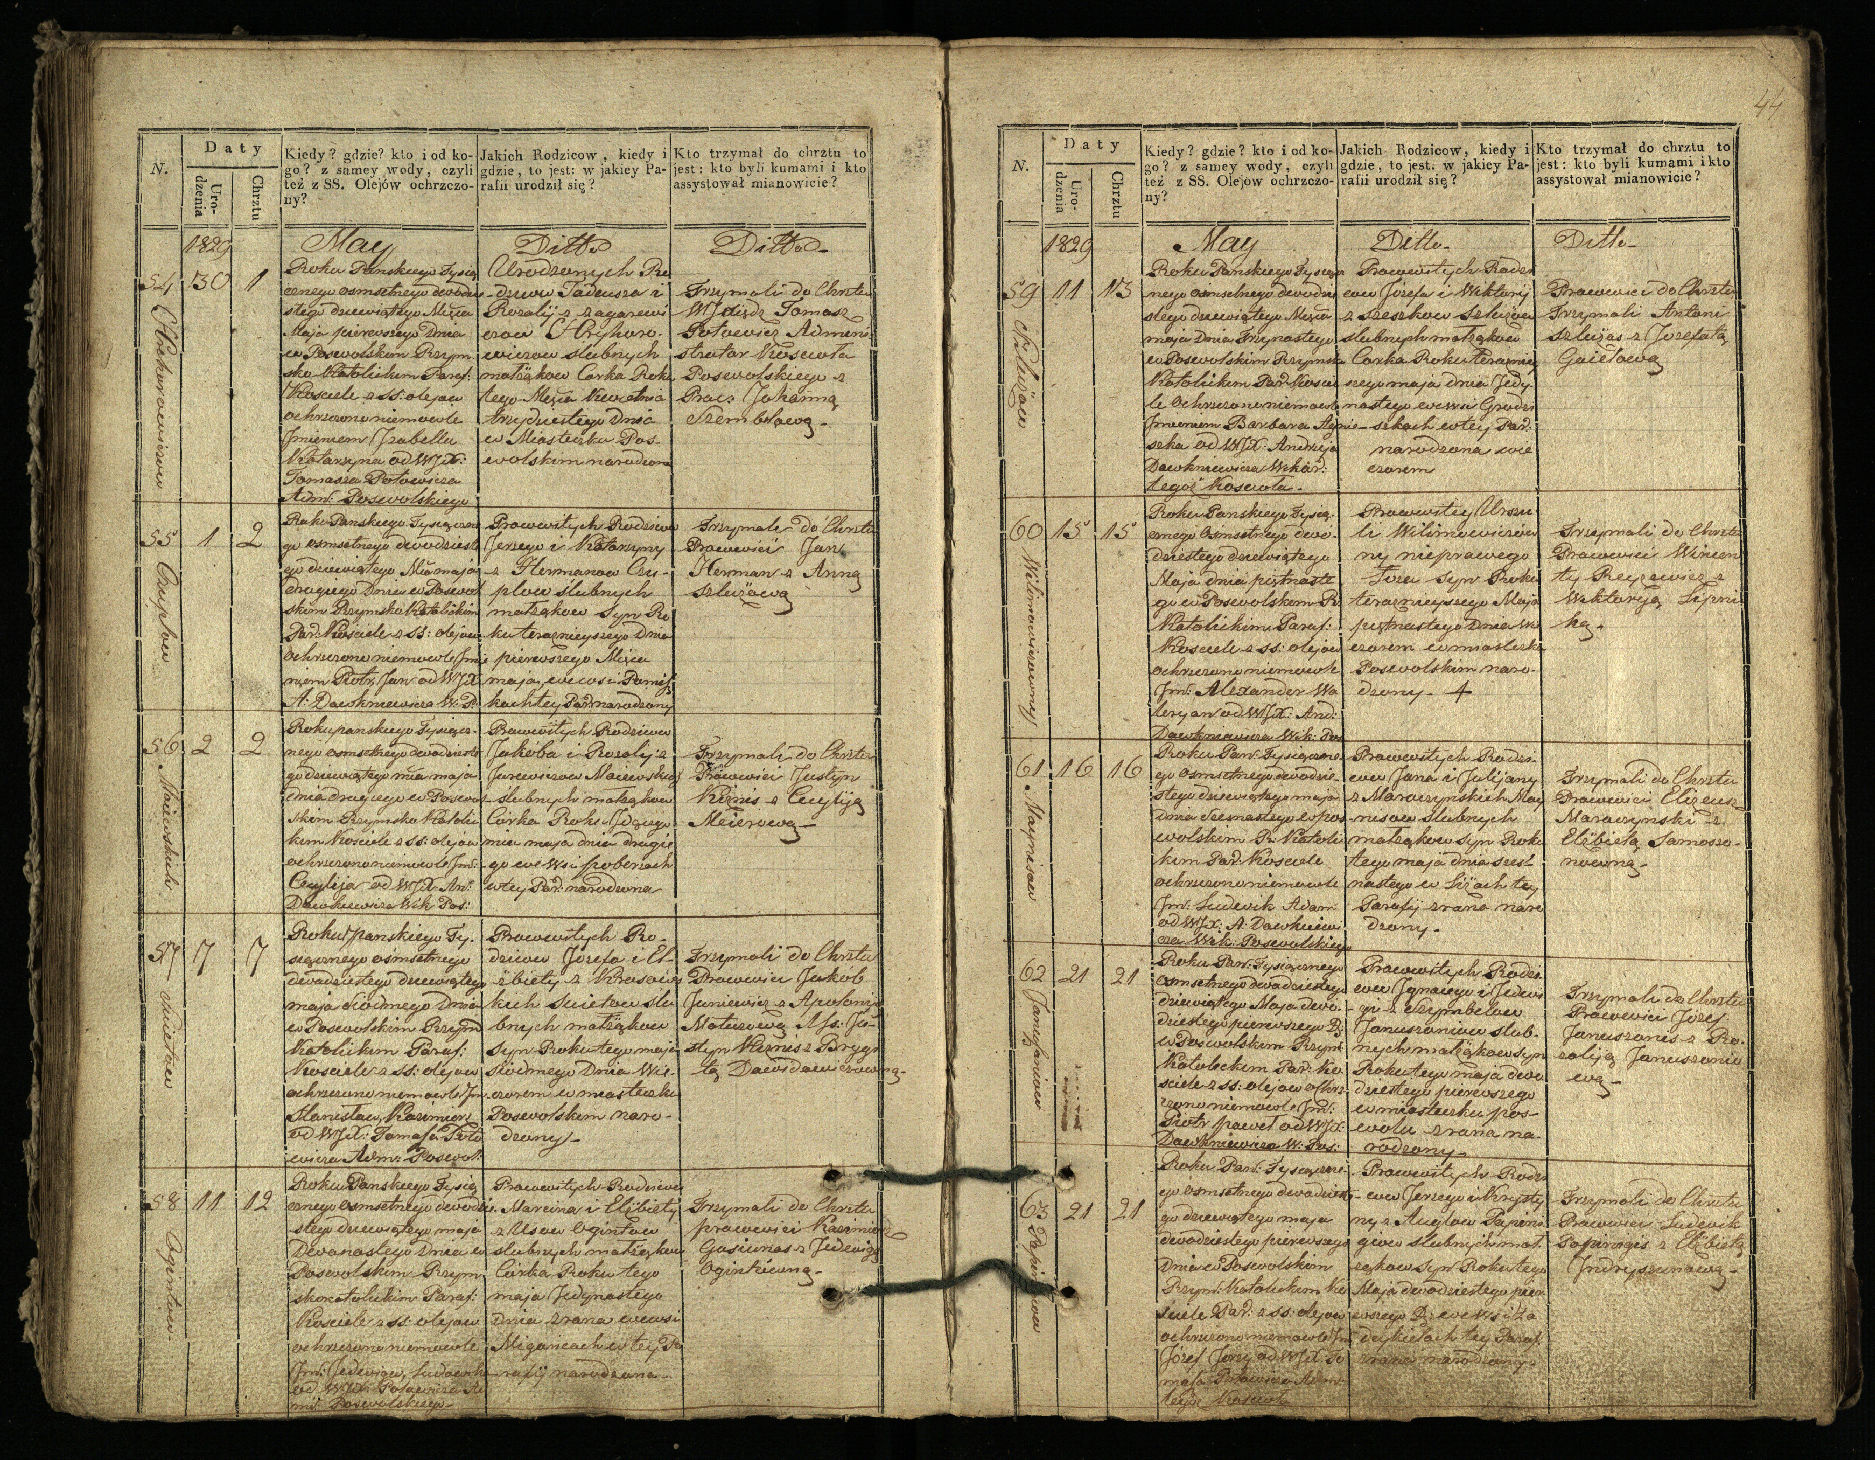 N.
Daty
Uro-
dzenia
Chrztu
Kiedy? gdzie? kto i od ko-
go? z samey wody, czyli
też z SS. Olejów ochrzczo-
ny?
Jakich Rodzicow, kiedy i
gdzie, to jest: w jakiey Pa-
rafii urodził się?
Kto trzymał do chrztu to
jest: kto byli kumami i kto
assystował mianowicie?
1829
May
Ditto
Ditto
54
30
1
Roku Panskiego Tysią
cznego osmsetnego dwódzie
stego dziewiątego Mca
Maja pierwszego Dnia
w Poswolskim Rzym
sko Katolickim Paraf:
Kosciele z SS: olejow
ochrzczono niemowle
Jmieniem Izabella
Katarzyna od WJX:
Tomasza Potowicza
Adm: Poswolskiego
Urodzonych Ro
dzicow Tadeusza i
Rozalij z
slubnych
małżąkow Corka Roku
tego Mca Kwietnia
trzydziestego Dnia
w Miasteczku Pos-
wolskim narodzona
Trzymali do Chrztu
WJXiądz Tomasz
Potowicz Admini
strator Koscioła
Poswolskiego z
Panią Johanną
55
1
2
Czuplow
Roku Panskiego Tysiączne
go osmsetnego dwodzieste
go dziewiątego Mca maja
drugiego Dnia w Poswol
skim Rzymsko Katolickim
Par: Kosciele z SS: olejow
ochrzczono niemowle Jmie
niem Piotr, Jan od WJX
A: Dawkniewicza W: P.
Prawowitych Rodzicow
Jerzego i Katarzyny
z Hermanow Czu-
plow slubnych
małżąkow Syn Ro
ku terazniejszego Dnia
pierwszego Mca
maja, we wsi
tey Par: narodzony
Trzymali do Chrztu
Prawowici Jan
Herman z Anną
Szlużową
56
2
2
Roku panskiego Tysiącz-
nego osmsetnego dwodzieste
go dziewiątego mca maja
dnia drugiego w Poswol
skim Rzymsko Katolic
kim Kosciele z SS: olejow
ochrzczono niemowle Jm:
Cecylija od WJX. An:
Dawkniewicza Wik Pos:
Prawowitych Rodzicow
Jakoba i Rozalij z
Jurewiczow
slubnych małżąkow
Corka Roku Idącego
mca maja dnia drugie
go we Wsi pobenach
w tey Par: narodzona
Trzymali do Chrztu
Prawowici Justyn
Kiznis z Cecyliją
Meierową
57
7
7
Roku panskiego Ty-
sięcznego osmsetnego
dwódziestego dziewiątego
maja siodmego Dnia
w Poswolskim Rzym
Katolickim Paraf:
Kosciele z SS: olejow
ochrzczono niemowle Jm
Stanisław, Kazimierz
od WJX: Tomasza Poto
wicza Adm: Poswol:
Prawowitych Ro-
dzicow Jozefa i El-
zbiety z
slu
bnych małżąkow
Syn Roku tego maja
siodmego Dnia Wie-
czorem w miasteczku
Poswolskim naro-
dzony
Trzymali do Chrztu
Prawowici Jakob
Janiewicz z Apolonią
Matuzową Ass: Ju-
styn Kiznis z Brygi
tą Dawidowiczową
58
11
12
Ogintow
Roku Panskiego Tysią
cznego osmsetnego dwódzie
stego dziewiątego maja
Dwonastego Dnia w
Poswolskim Rzym
skokatolickim Paraf:
Kosciele z SS: olejow
ochrzczono niemowle
Jm: Jadwiga, Ludowika
od WJX: Potowicza Ad
mi: Poswolskiego
Prawowitych Rodzicow
Marcina i Elżbiety
z Usow Ogintow
slubnych małżąkow
Corka Roku tego
maja Jedynastego
dnia zrana we wsi
Miganicach w tey Pa
rafij narodzona
Trzymali do Chrztu
prawowici Kazimierz
Gasiunas z Jadwigą
Ogintówną
44
N.
Daty
Uro-
dzenia
Chrztu
Kiedy? gdzie? kto i od ko-
go? z samey wody, czyli
też z SS. Olejów ochrzczo-
ny?
Jakich Rodzicow, kiedy i
gdzie, to jest: w jakiey Pa-
rafii urodził się?
Kto trzymał do chrztu to
jest: kto byli kumami i kto
assystował mianowicie?
1829
May
Ditto
Ditto
59
11
13
Roku Panskiego Tysiącz
nego osmsetnego dwodzie
stego dziewiątego Mca
maja Dnia Trzynastego
w Poswolskim Rzymsko
Katolickim Par: Koscie
le ochrzczono niemowle
Jmieniem Barbara Agnie
szka od WJX: Andrzeja
Dawkniewicza Wikar:
tegoż Koscioła
Prawowitych Rodzi
cow Jozefa i Wiktorij
z
slubnych małżąkow
Corka Roku teraznie
szego maja dnia Jedy
nastego we wsi Grodzi
szkach w tey Par:
narodzona wie
czorem
Prawowici do Chrztu
Trzymali Antoni
Szlużas z Jozefatą
60
15
15
Wilimowiczowney
Roku Panskiego Tysią
cznego Osmsetnego dwó
dziestego dziewiątego
Maja dnia piętnaste
go w Poswolskim R:
Katolickim Paraf:
Kosciele z SS: olejow
ochrzczono niemowle
Jm: Alexander Wa
leryan od WJX: And:
Dawkniewicza Wik: Pos
Prawowitey Urszu
li Wilimowiczow
ny nieprawego
Łoża Syn Roku
terazniejszego Maja
piętnastego Dnia wie
czorem w miasteczku
Poswolskim naro-
dzony
Trzymali do Chrztu
Prawowici Wincen
ty z
Wiktoryą Lipni
ką
61
16
16
Roku Pan: Tysiączne
go osmsetnego dwódzie
stego dziewiątego maja
dnia szesnastego w pos
wolskim R: Katolic
kim Par: Kosciele
ochrzczono niemowle
Jm: Ludwik Adam
od WJX: A: Dawkniewi
cza Wik: Poswolskiego
Prawowitych Rodzi
cow Jana i Julijany
z Maraczynskich
slubnych
małżąkow Syn Roku
tego maja dnia szes
nastego w tey
Parafij zrana naro
dzony
Trzymali do Chrztu
Prawowici Elizeusz
Maraczynski z
Elżbietą
62
21
21
Januszaniow
Roku Pan: Tysiącznego
osmsetnego dwadziestego
dziewiątego Maja dwo
dziestego pierwszego D:
w poswolskim Rzym
Katolickim Par: Ko
sciele z SS: olejow ochrz
czono niemowle Jm:
Piotr paweł od WJX:
Dawkniewicza W: Pos:
Prawowitych Rodzi
cow Ignacego i Jadwi
gi z
Januszaniow slub-
nych małżąkow Syn
Roku tego maja dwó
dziestego pierwszego
w miasteczku pos-
wolu zrana na-
rodzony
Trzymali do Chrztu
Prawowici Jozef
Januszanis z Ro-
zaliją Januszanio
wą
63
21
21
Roku Pan: Tysiączne-
go osmsetnego dwódzieste
go dziewiątego maja
dwódziestego pierwszego
Dnia w Poswolskim
Rzym: Katolickim Ko
sciele Par: z SS: olejow
ochrzczono niemowle Jm
Jozef Jerzy od WJX: To
masza Potowicza Adm:
tegoż Koscioła
Prawowitych Rodzi
cow Jerzego i Krysty
ny z
slubnych mał
żąkow Syn Roku tego
Maja dwodziestego pier
wszego D: we wsi
tey Paraf:
zrana narodzony
Trzymali do Chrztu
Prawowici Ludwik
z Elżbietą